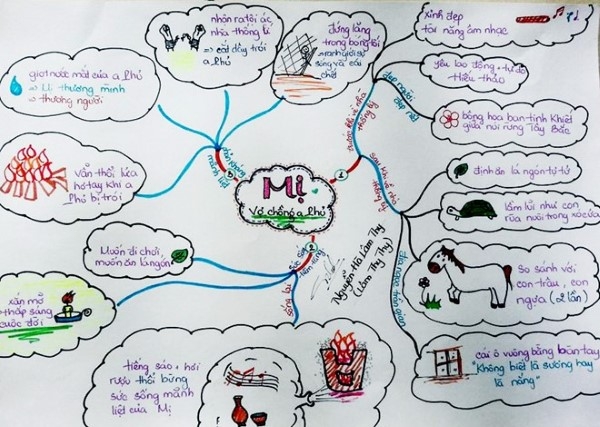 Mị
Vợ chồng a Phủ
1
trước khi về nhà
thống lý
đẹp người
đẹp nết
xinh đẹp
tài năng âm nhạc
yêu lao động + tự do
hiếu thảo
bông hoa ban tinh khiết
giữa núi rừng Tây Bắc
sau khi về nhà
thống lý
định ăn lá ngón tự tử
lầm lũi như con
rùa nuôi trong xó cửa
so sánh với
con trâu, con
ngựa (2 lần)
cái ô vuông bằng bàn tay
"Không biết là sương hay
là nắng"
2
sức sống
tiềm tàng
sống lại
Muốn đi chơi,
muốn ăn lá ngón
xắn mỡ
thắp sáng
cuộc đời
tiếng sáo + hơi
rượu thổi bừng
sức sống mãnh
liệt của Mị
3
phản kháng
mãnh liệt
Vẫn thổi lửa
hơ tay khi a
Phủ bị trói
giọt nước mắt của a Phủ
=> Mị thương mình
=> thương người
nhận ra tội ác
nhà thống lí
=> cắt dây trói
a Phủ
đứng lặng
trong bóng tối
=> ranh giới sự
sống và cái
chết
Nguyễn Hà Lâm Thy
(Lâm Thy Thy)